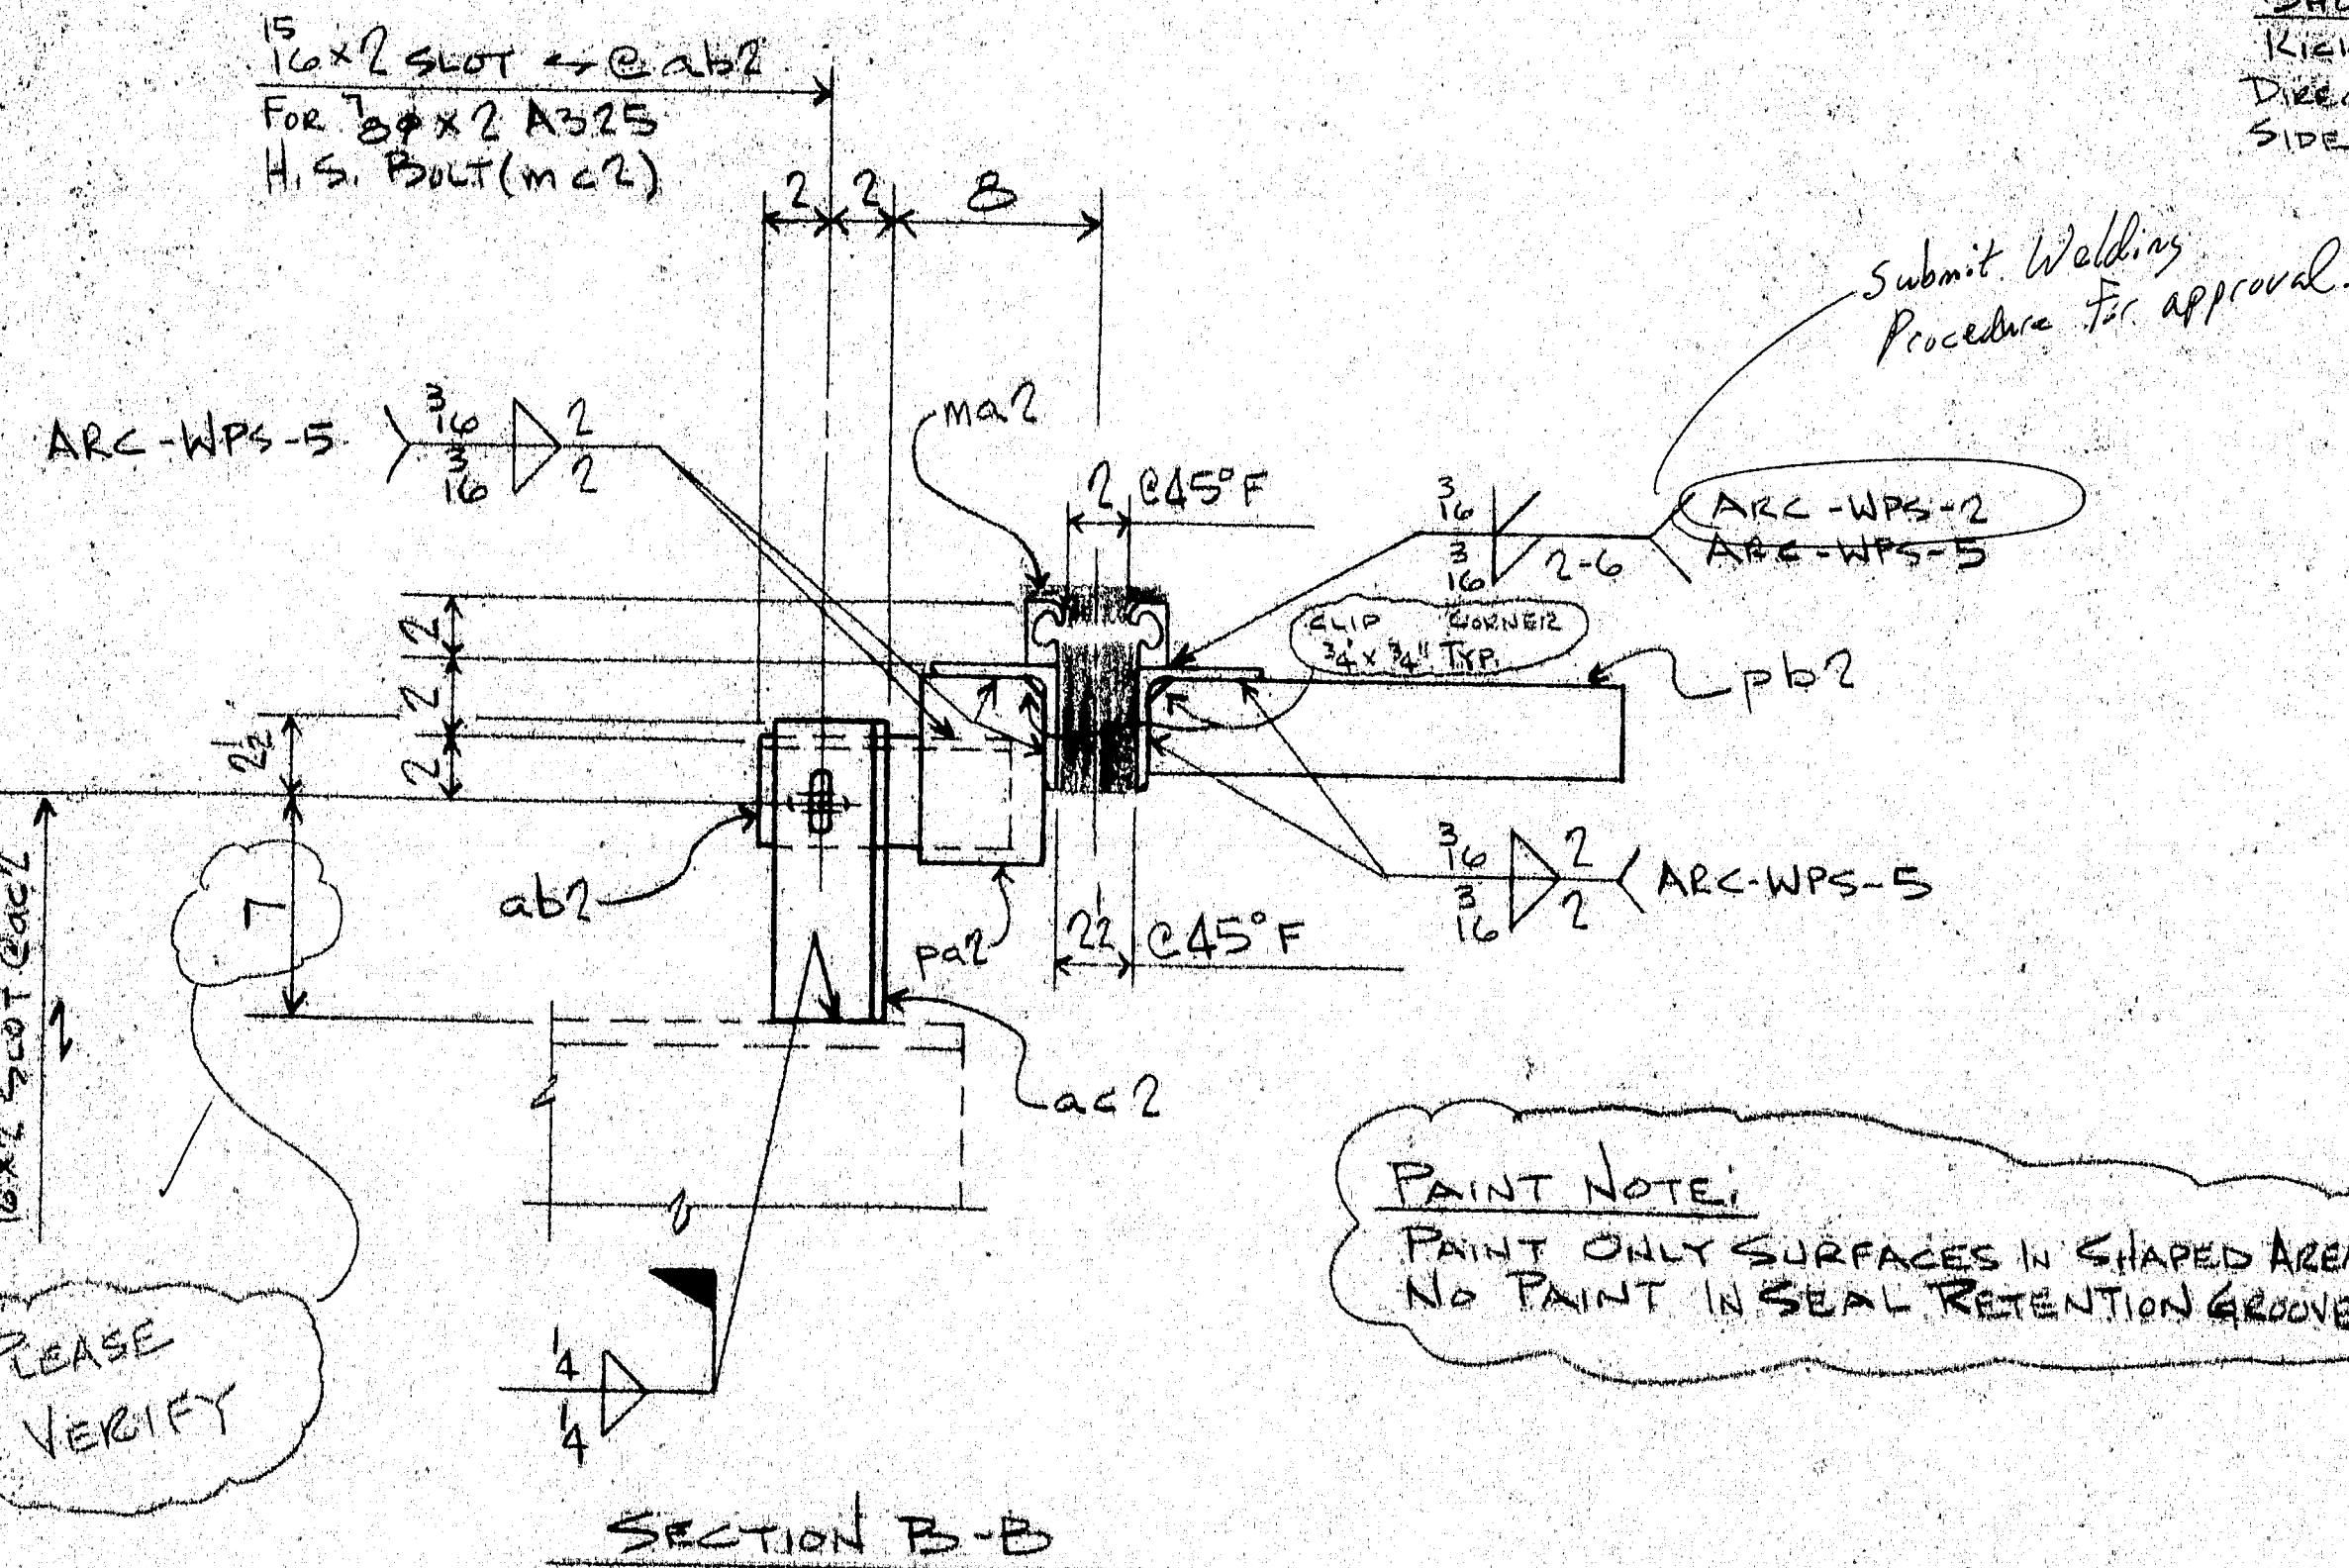 15/16 x 2 SLOT ↔ @ ab2
FOR 7/8 φ x 2 A325
H.S. BOLT (mc2)
KICK
DIREC
SIDE
2 2 8
Submit Welding
Procedure For approval.
ARC-WPS-5
3/16 2
3/16 2
ma2
2 @45°F
3/16
3/16 2-6
ARC-WPS-2
ARC-WPS-5
CLIP CORNER
3/4" x 3/4" TYP.
pb2
2
2
2
2 1/2
7
ab2
pa2
2 1/2 @45°F
3/16 2
3/16 2
ARC-WPS-5
ac2
x 2 SLOT @ac2
PLEASE
VERIFY
1/4
1/4
PAINT NOTE:
PAINT ONLY SURFACES IN SHAPED AREA
NO PAINT IN SEAL RETENTION GROOVE
SECTION B-B